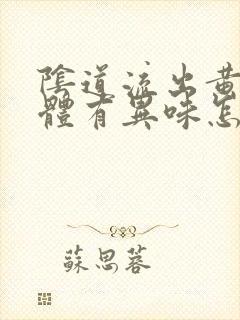 陰道流出黃
體有異味怎
蘇思蓉